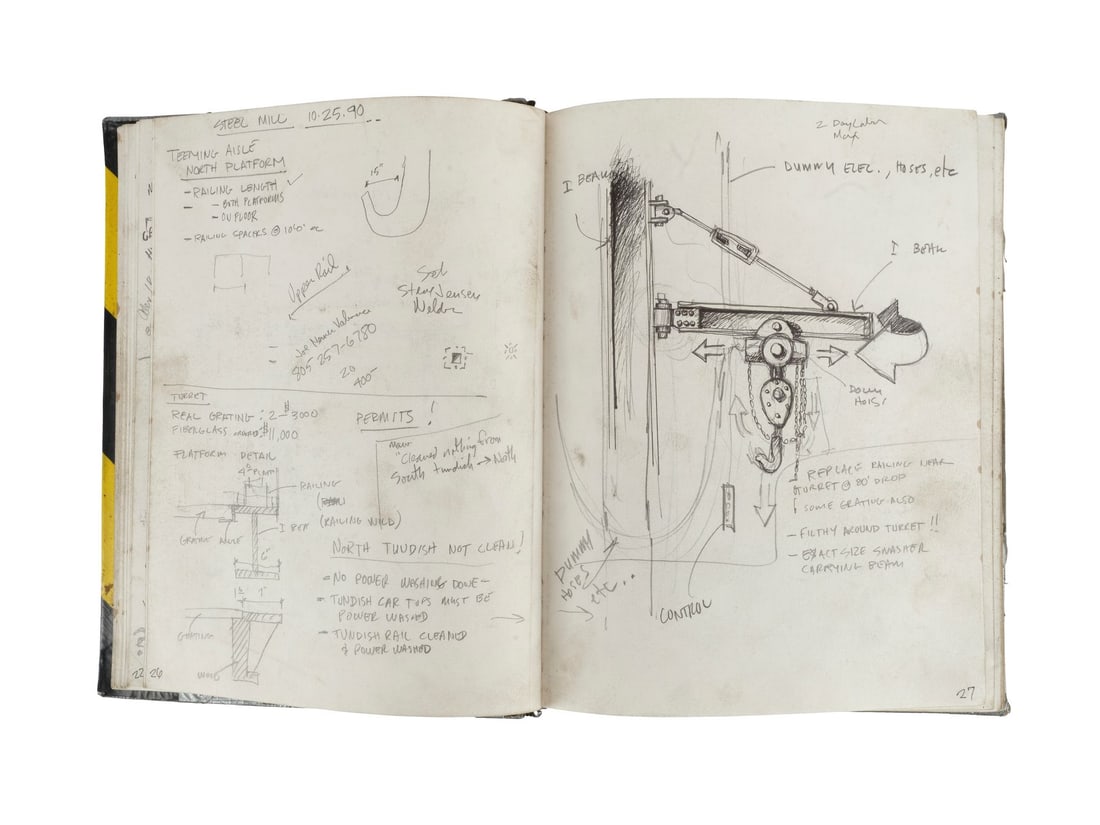 STEEL MILL 10.25.90
TEEMING AISLE
NORTH PLATFORM
- RAILING LENGTH
- - BOTH PLATFORMS
- ON FLOOR
- RAILING SPACERS @ 10'0" oc
15"
Upper Rail
Steve Jensen
Welder
805 257-6780
20
400-
TURRET
REAL GRATING : 2-$3000
FIBERGLASS $11,000
PLATFORM DETAIL
4"
RAILING
(RAILING WILD)
I BEAM
GRATING
6"
1"
GRATING
WOOD
PERMITS!
"Cleaned nothing from
South tundish → North
NORTH TUNDISH NOT CLEAN!
- NO POWER WASHING DONE -
- TUNDISH CAR TOPS MUST BE
POWER WASHED
- TUNDISH RAIL CLEANED
& POWER WASHED
22 26
2 Day Labor
Max
DUMMY ELEC., HOSES, etc
I BEAM
I BEAM
DOWN
HOIST
REPLACE RAILING NEAR
TURRET @ 80' DROP
SOME GRATING ALSO
- FILTHY AROUND TURRET!!
- EXACT SIZE SMASHER
CARRYING BEAM
DUMMY
HOSES
etc..
CONTROL
27